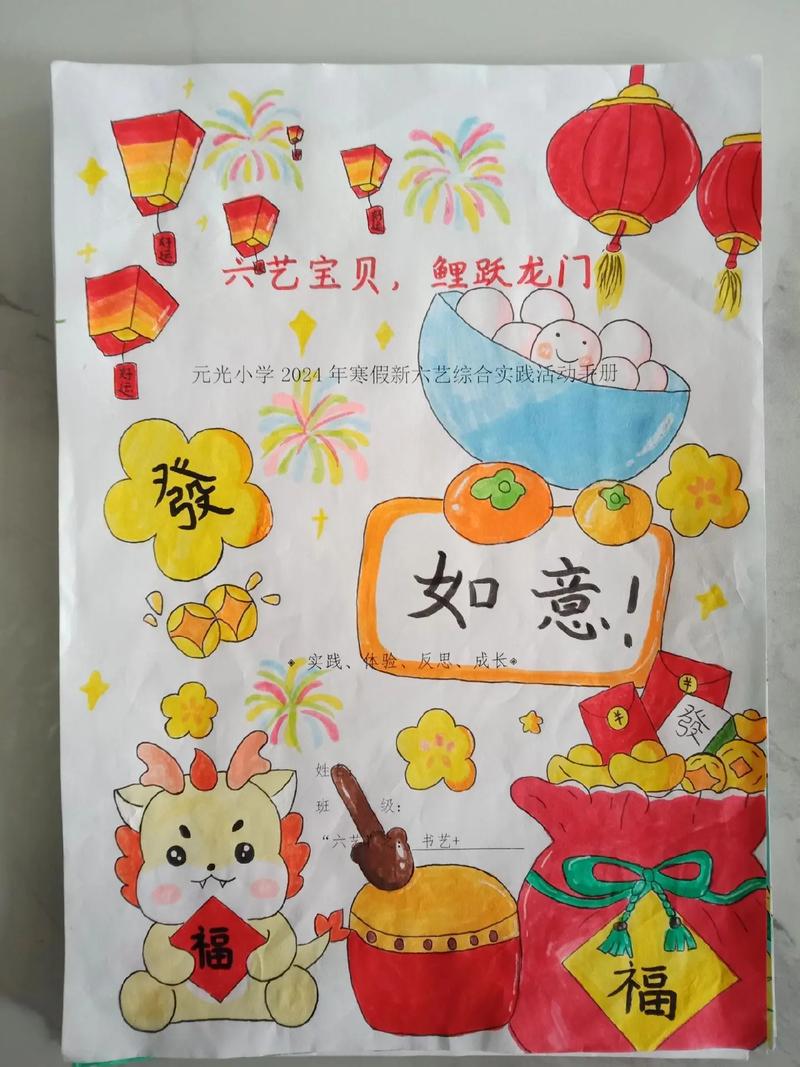 好运
好运
六艺宝贝，鲤跃龙门
好运
元光小学2024年寒假新六艺综合实践活动手册
發
如意！
实践、体验、反思、成长
發
姓
班 级：
“六艺 书艺+
福
福